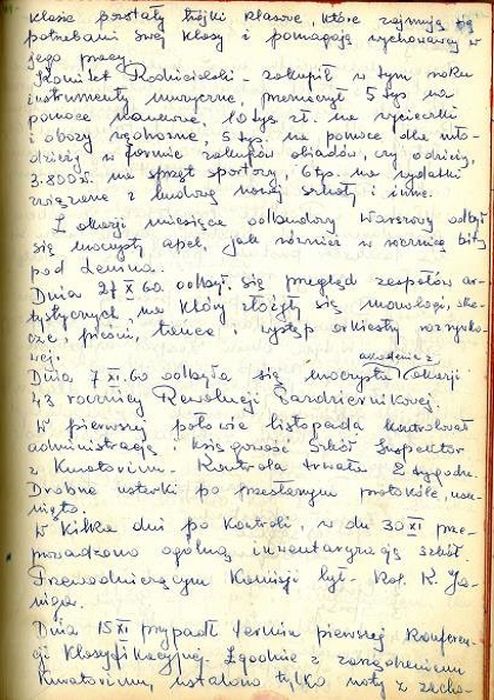 klasie powstały trójki klasowe, które zajmują się
potrzebami swej klasy i pomagają wychowawcy w
jego pracy.
Komitet Rodzicielski - zakupił w tym roku
instrumenty muzyczne, przeznaczył 5 tys na
pomoce naukowe, 10 tys. zł. na wycieczki
i obozy 5 tys. na pomoce dla mło-
dzieży w formie zakupów obiadów, czy odzieży,
3.800 zł. na sprzęt sportowy, 6 tys. na wydatki
związane z budową nowej szkoły i inne.
Z okazji miesiąca odbudowy Warszawy odbył
się uroczysty apel, jak również w rocznicę bitwy
pod Lenino.
Dnia 27 X 60 odbył się przegląd zespołów ar-
tystycznych, na który złożyły się monologi, ske-
cze, pieśni, tańce i występ orkiestry rozrywko-
wej.
Dnia 7 XI.60 odbyła się uroczysta akademia z okazji
43 rocznicy Rewolucji Październikowej.
W pierwszej połowie listopada kontrolował
administrację i księgowość Szkół Inspektor
z Kuratorium. Kontrola trwała 2 tygodnie.
Drobne usterki po przesłanym protokóle, usu-
nięto.
W kilka dni po kontroli, w dn 30 XI prze-
prowadzono ogólną inwentaryzację szkół.
Przewodniczącym Komisji był - kol. K. Ja-
niga.
Dnia 15 XI przypadł termin pierwszej Konferen-
cji Klasyfikacyjnej. Zgodnie z zarządzeniem
Kuratorium, ustalono tylko noty z zacho-